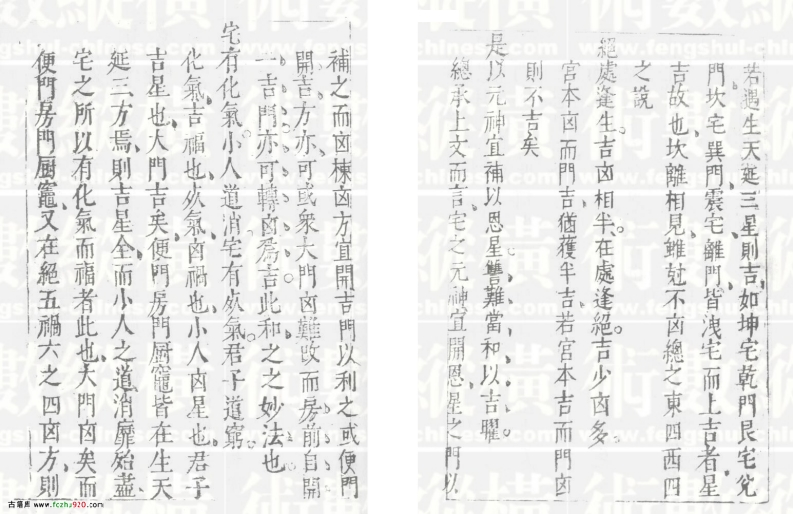 若遇生天延三星則吉如坤宅乾門艮宅兌
門坎宅巽門震宅離門皆洩宅而上吉者星
吉故也坎離相見雖尅不凶總之東四西四
之說
絕處逢生吉凶相半在處逢絕吉少凶多
宮本凶而門吉猶獲半吉若宮本吉而門凶
則不吉矣
是以元神宜補以恩星讐難當和以吉曜
總承上文而言宅之元神宜開恩星之門以
補之而凶棟凶方宜開吉門以利之或便門
開吉方亦可或衆大門凶難改而房前自開
一吉門亦可轉凶爲吉此和之之妙法也
宅有化氣小人道消宅有㷀氣君子道窮
化氣吉福也㷀氣凶禍也小人凶星也君子
吉星也大門吉矣便門房門厨竈皆在生天
延三方焉則吉星全而小人之道消靡殆盡
宅之所以有化氣而福者此也大門凶矣而
便門房門厨竈又在絕五禍六之四凶方則
古籍库 www.fczhj920.com